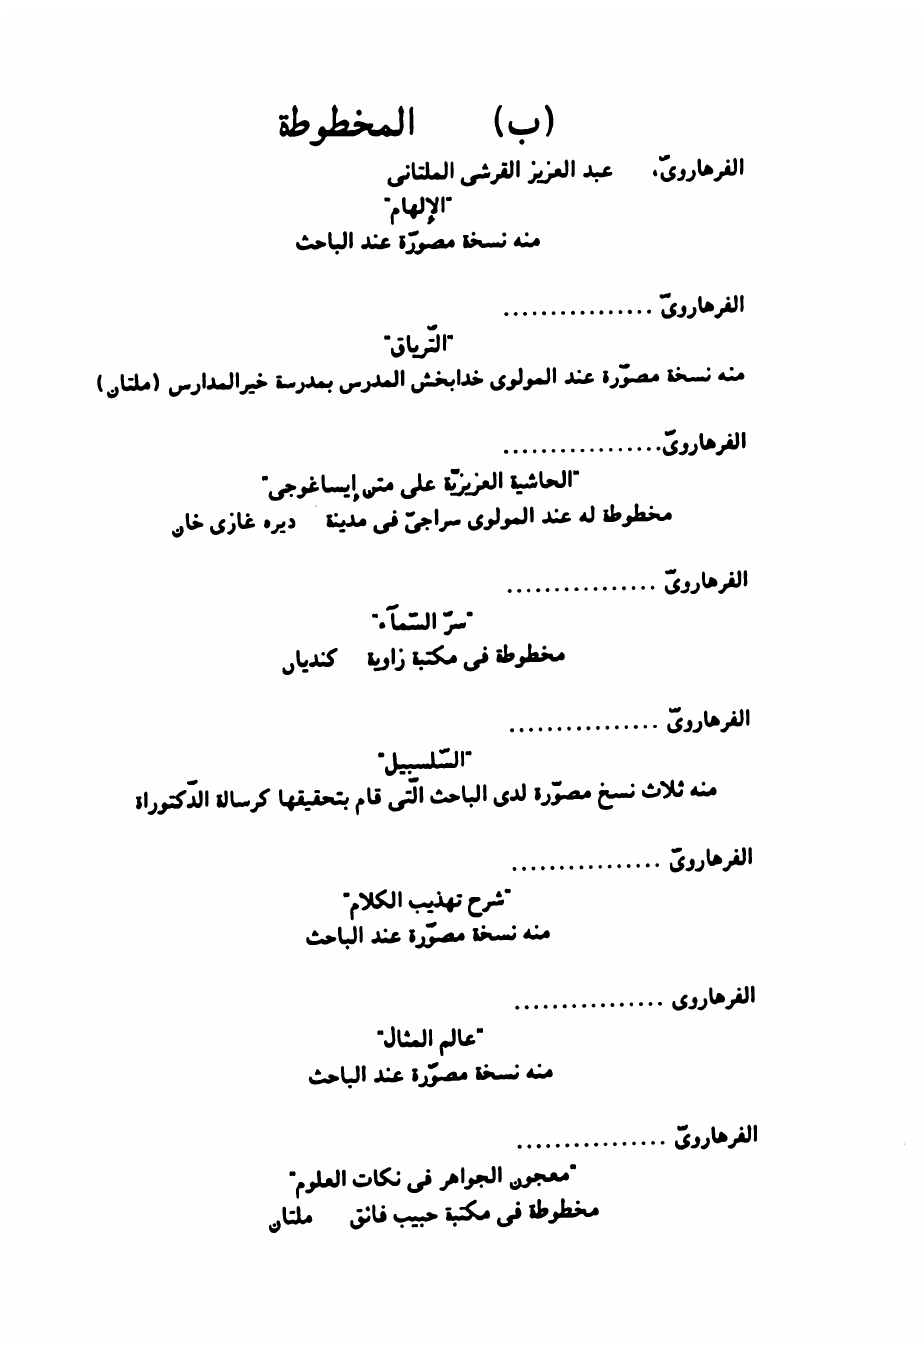 (ب) المخطوطة
الفرهاروىّ، عبد العزيز القرشى الملتانى
"الإلهام"
منه نسخة مصوّرة عند الباحث
الفرهاروىّ ................
"التّرياق"
منه نسخة مصوّرة عند المولوى خدابخش المدرس بمدرسة خيرالمدارس (ملتان)
الفرهاروىّ.................
"الحاشية العزيزيّة على متن إيساغوجى"
مخطوطة له عند المولوى سراجىّ فى مدينة ديره غازى خان
الفرهاروىّ ................
"سرّ السّمآء"
مخطوطة فى مكتبة زاوية كنديان
الفرهاروىّ ................
"السّلسبيل"
منه ثلاث نسخ مصوّرة لدى الباحث الّتى قام بتحقيقها كرسالة الدّكتوراة
الفرهاروىّ ................
"شرح تهذيب الكلام"
منه نسخة مصوّرة عند الباحث
الفرهاروى ................
"عالم المثال"
منه نسخة مصوّرة عند الباحث
الفرهاروىّ ................
"معجون الجواهر فى نكات العلوم"
مخطوطة فى مكتبة حبيب فائق ملتان